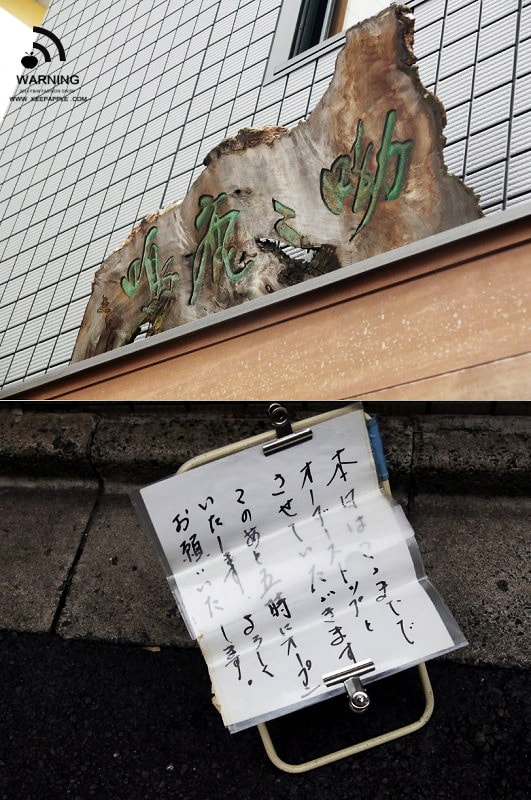 WARNING
WWW.KEEPAPPLE.COM
本日はここまでで
オーダーストップと
させていただきます
このあと五時にオープン
いたします。よろしく
お願いいたします。